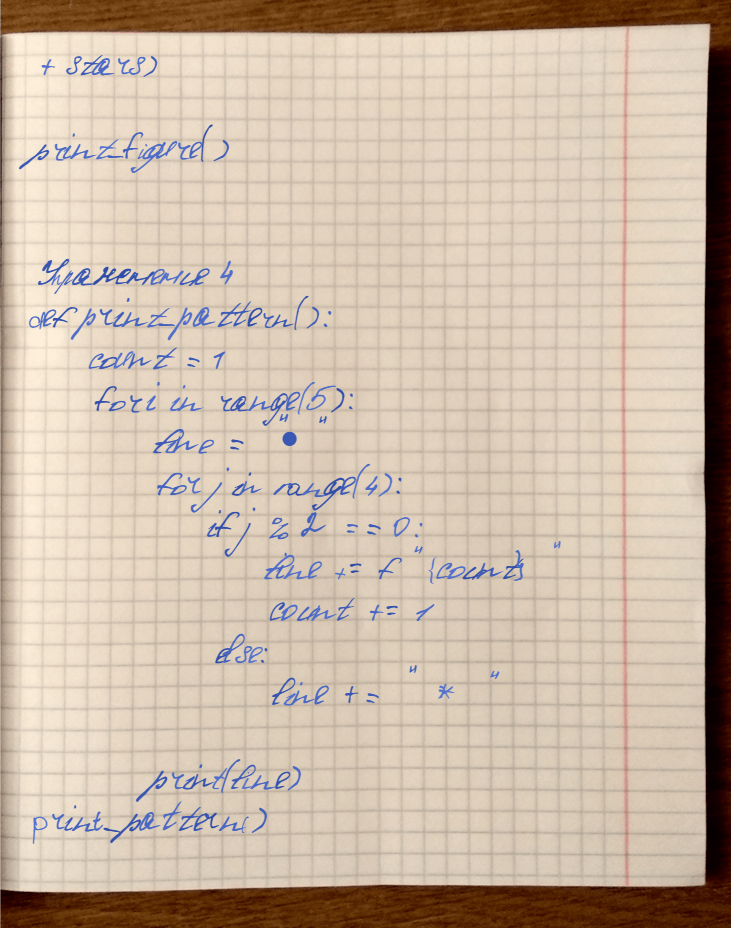 + stars)
print_figure()
Упражнение 4
def print_pattern():
count = 1
for i in range(5):
line = " "
for j in range(4):
if j % 2 == 0:
line += f "{count} "
count += 1
else:
line += " * "
print(line)
print_pattern()